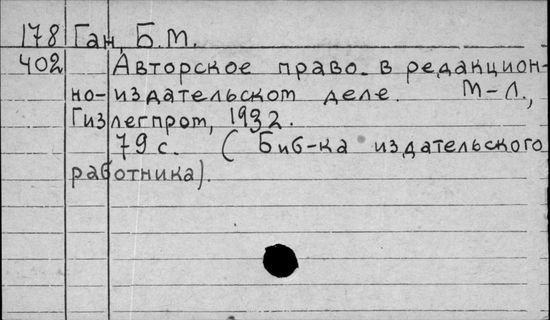 178 Ган, Б.М.
402 Авторское право в редакцион-
но-издательском деле. М-Л.,
Гизлегпром, 1932.
79 с. (Биб-ка издательского
работника).